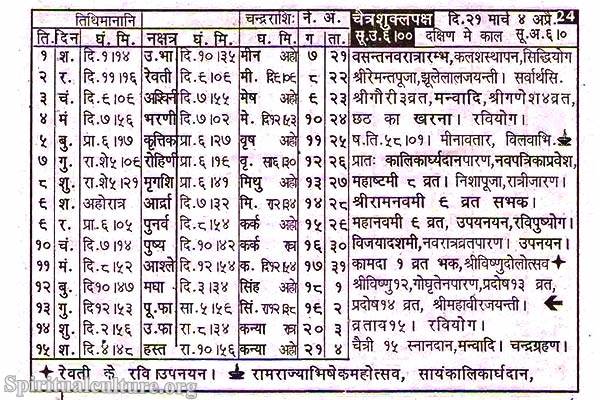 तिथिमानानि चन्द्रराशिः ने. अ. चैत्रशुक्लपक्ष दि.२१ मार्च ४ अप्रे. 24
ति. दिन घं. मि. नक्षत्र घं. मि. चन्द्रराशिः ग ता. सू.उ.६।०० दक्षिण मे काल सू.अ.६।०
१ श. दि.१।१४ उ.भा दि.१०।३५ मीन अहो ७ २१ वसन्तनवरात्रारम्भ,कलशस्थापन,सिद्धियोग
२ र. दि.११।१६ रेवती दि.९।०९ मी. ८ २२ श्रीरेमन्तपूजा,झूलेलालजयन्ती। सर्वार्थसि.
३ चं. दि.९।०९ अश्विनी दि.७।५५ मेष अहो ९ २३ श्रीगौरी३व्रत,मन्वादि,श्रीगणेश४व्रत,
४ मं दि.७।५६ भरणी दि.७।०२ मे. दि१२५३ १० २४ छठ का खरना। रवियोग।
५ बु. प्रा.६।१७ कृत्तिक प्रा.६।२७ वृष अहो ११ २५ ष.ति.५८।०१। मीनावतार, विलवाभि.
७ गु. रा.शे५।०९ रोहिणी प्रा.६।१९ वृ. १२ २६ प्रातः कालिकार्घ्यदानपारण,नवपत्रिकाप्रवेश,
८ शु. रा.शे५।२१ मृगशि प्रा.६।४१ मिथु अहो १३ २७ महाष्टमी ८ व्रत। निशापूजा,रात्रीजारण।
९ श. अहोरात्र आर्द्रा दि.७।३२ मि. १४ २८ श्रीरामनवमी ९ व्रत सभक।
९ र. प्रा.६।०५ पुनर्व दि.८।५४ कर्क अहो १५ २९ महानवमी ९ व्रत, उपयनयन,रविपुष्योग।
१० चं. दि.७।१४ पुष्य दि.१०।४२ कर्क १६ ३० विजयादशमी,नवरात्रव्रतपारण। उपनयन।
११ मं. दि.८।५२ आश्ले दि.१२।५४ क. दि१२।५४ १७ ३१ कामदा १ व्रत भक,श्रीविष्णुदोलोत्सव
१२ बु. दि१०।४७ मघा दि.३।३४ सिंह अहो १८ १ श्रीविष्णु१२,गोघृतेनपारण,प्रदोष१३ व्रत,
१३ गु. दि१२५३ पू.फा सा.५।५९ सिं. १९ २ प्रदोष१४ व्रत, श्रीमहावीरजयन्ती।
१४ शु. दि.२।५६ उ.फा रा.८।३४ कन्या २० ३ व्रताय१५। रवियोग।
१५ श. दि.४।४८ हस्त रा.१०।५६ कन्या अहो २१ ४ चैत्री १५ स्नानदान,मन्वादि। चन्द्रग्रहण।
रेवती के रवि।उपनयन। रामराज्याभिषेकमहोत्सव, सायंकालिकार्घदान,
Spiritualculture.org